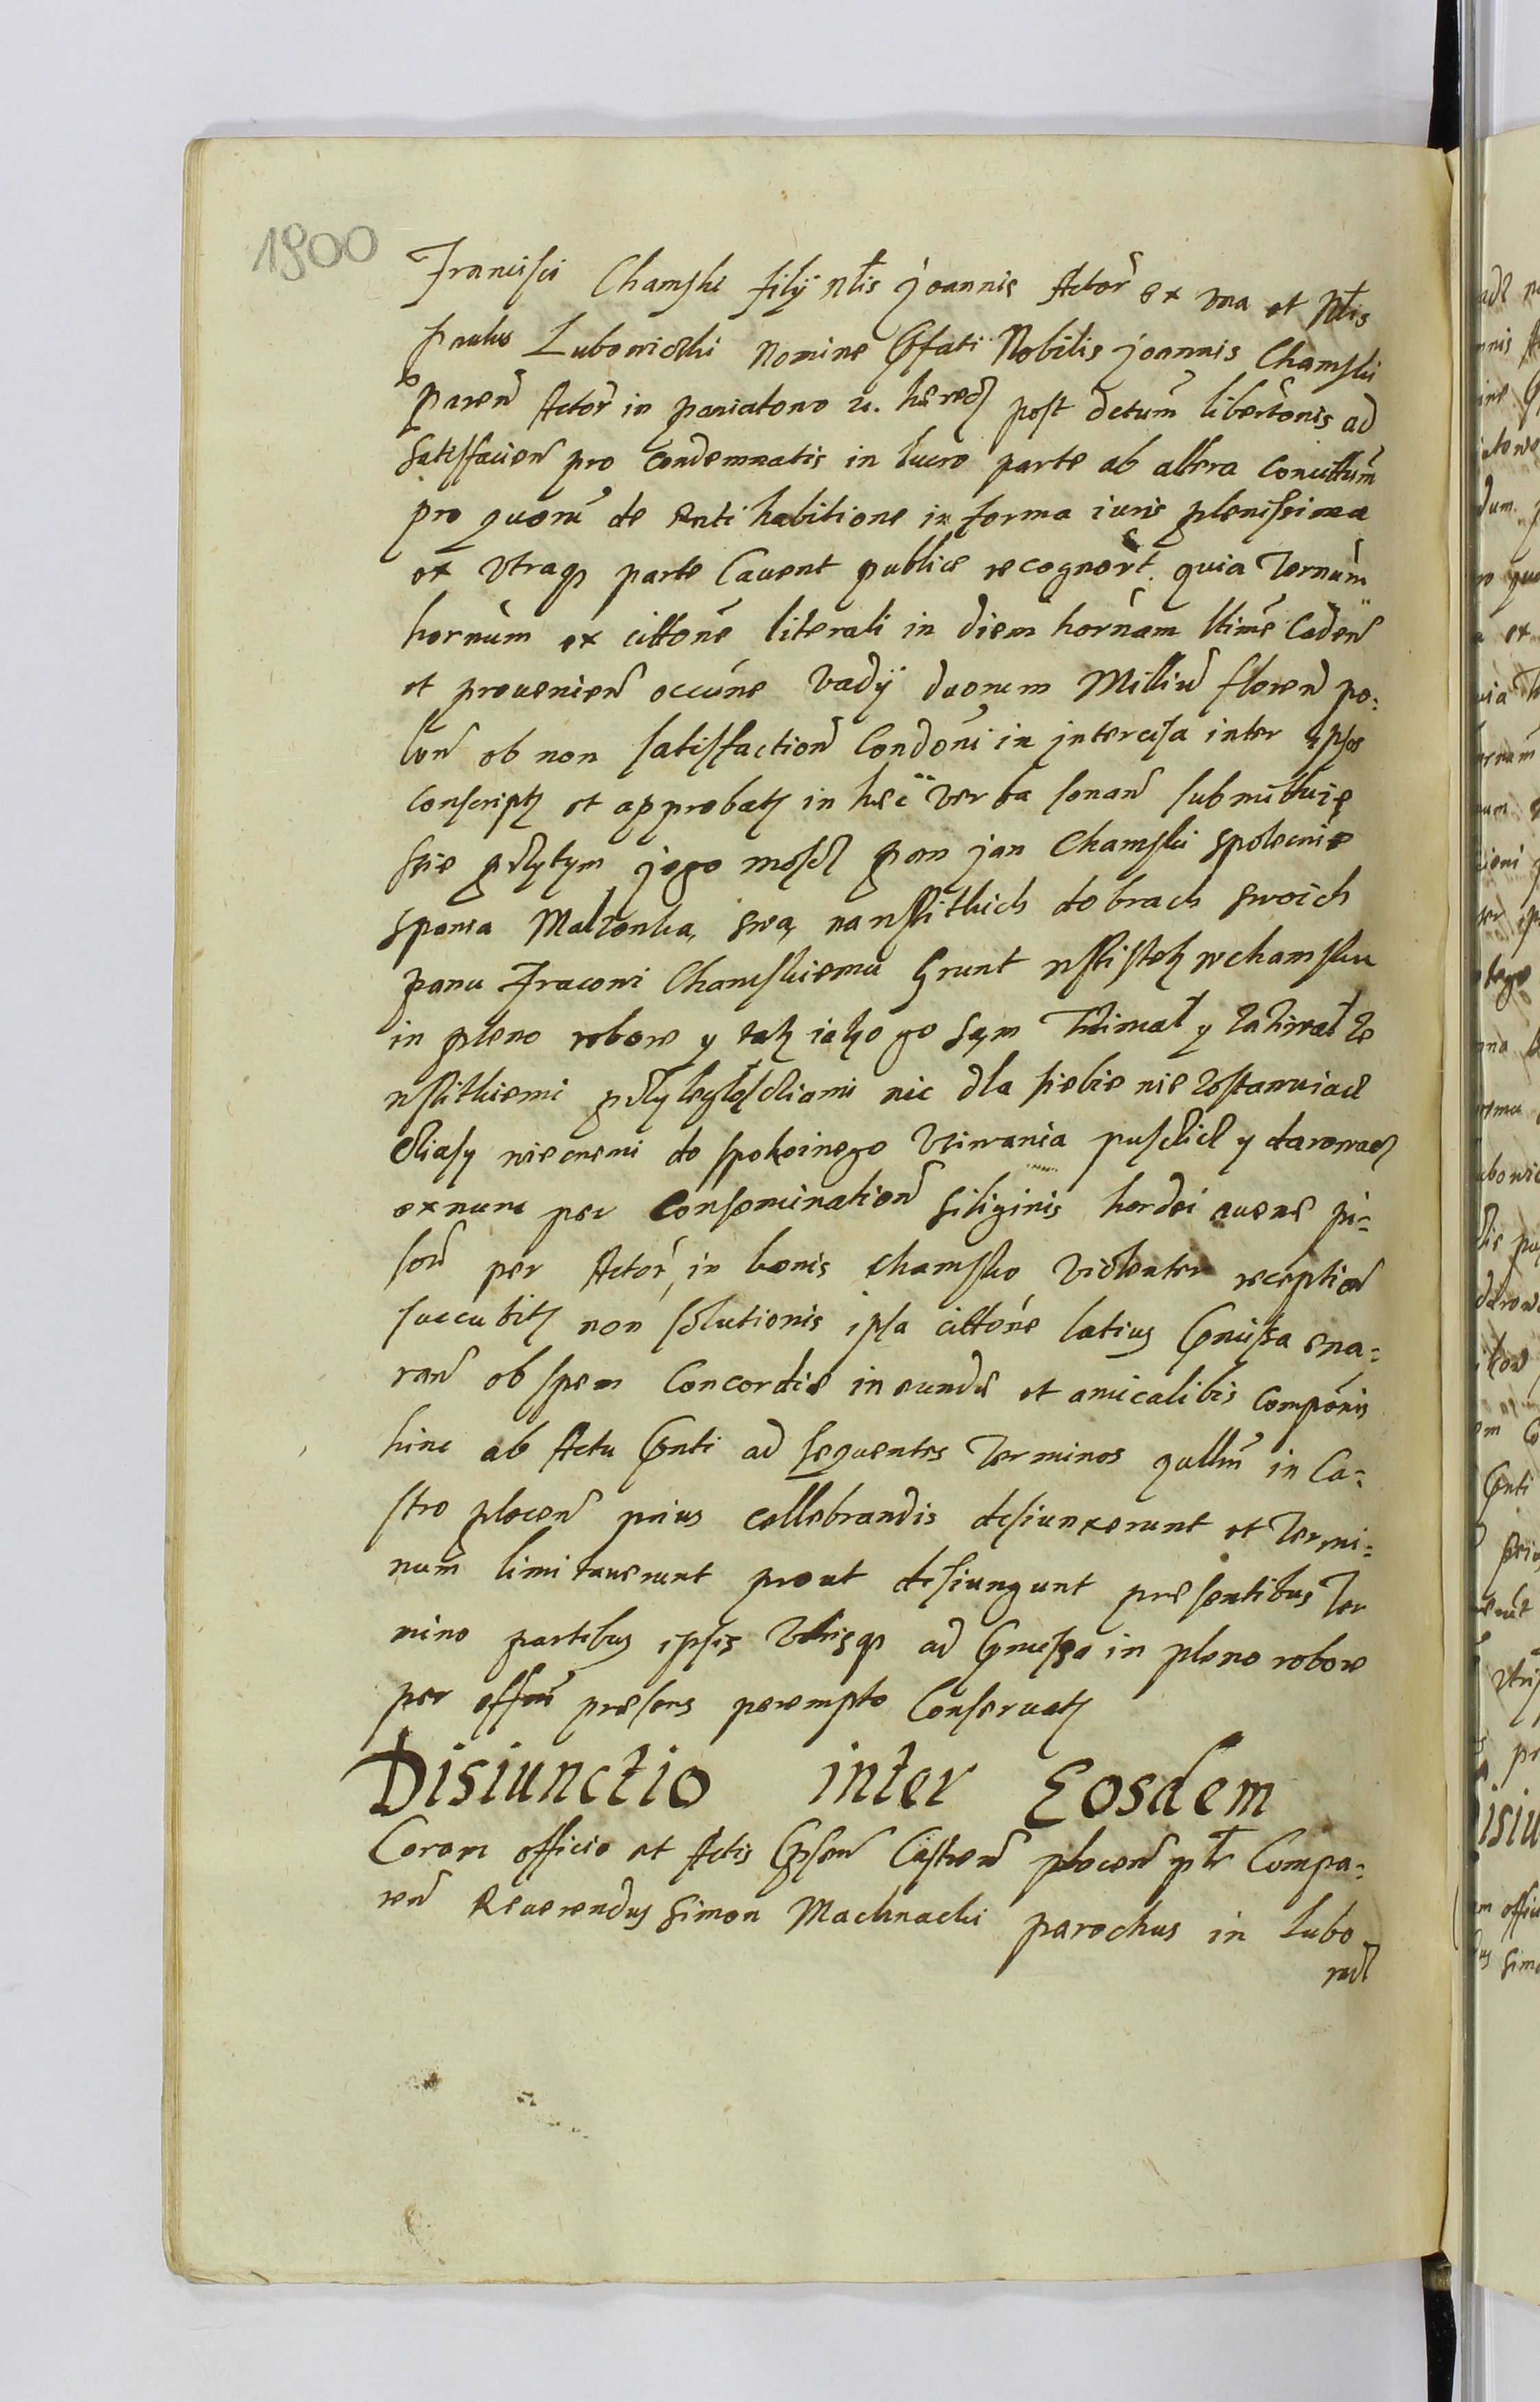 1900
Francisci Chamski filÿ Nłis Joannis Actoř ex vna et Nłis
Paulus Lubowidzki Nomine Pfati Nobilis Joannis Chamski
Pareñ Actoř in paniatowo u. hæred post dctum libertonis ad
Satisfacieñ pro Condemnatis in lucro parte ab altera
pro quorũ de Rati habitione in forma iuris plenissima
ex Vtraq parte Cauent publice recognorũt. quia Ternum
hornum ex cittone literali in diem hornam ltime Cadeñ
et prouenieñ occne Vadÿ duorum Milliũ floreñ po:
loñ ob non satisfactioñ Condoni in jntercisa inter ipsos
Conscript et approbat in hæc Verba sonañ submittuie
sie przytym jego mosdz pan jan Chamski spolecnie
spania Malzonka swa, na wszitkich dobrach swoich
panu Fraconi Chamskiemu Grunt wszistek w chamsku
in pleno robore y tak iako go sam Trzimał y zaziwał ze
wszitkiemi przyległosdziami nic dla siebie nie zostawuiacz
dziasy wiecnemi do spokoinego Vziwania pusdzicz y darowacz
ex nunc per Conseminatioñ siliginis hordei auenæ pi=
soñ per Actoř in bonis chamsko violenter receptioñ
succubit non solutionis ipsa cittone latius Pmissa ena=
rañ ob spem Concordiæ ineundæ et amicalibis Componis
hinc ab Actu Pnti ad sequentes Terminos qullm̃ in Ca=
stro ploceñ prius cellebrandis desiunxerunt et Termi=
num limitauerunt prout desiungunt præsentibus Ter
mino partibus ipsis Vtrisq ad Pmissa in pleno robore
per offm̃ præsens perempto Conseruat
Disiunctio inter Eosdem
Coram officio et Actis Psen Castreñ ploceñ płr Compa=
reñ Reuerendus Simon Machnacki parochus in Lubo
widz